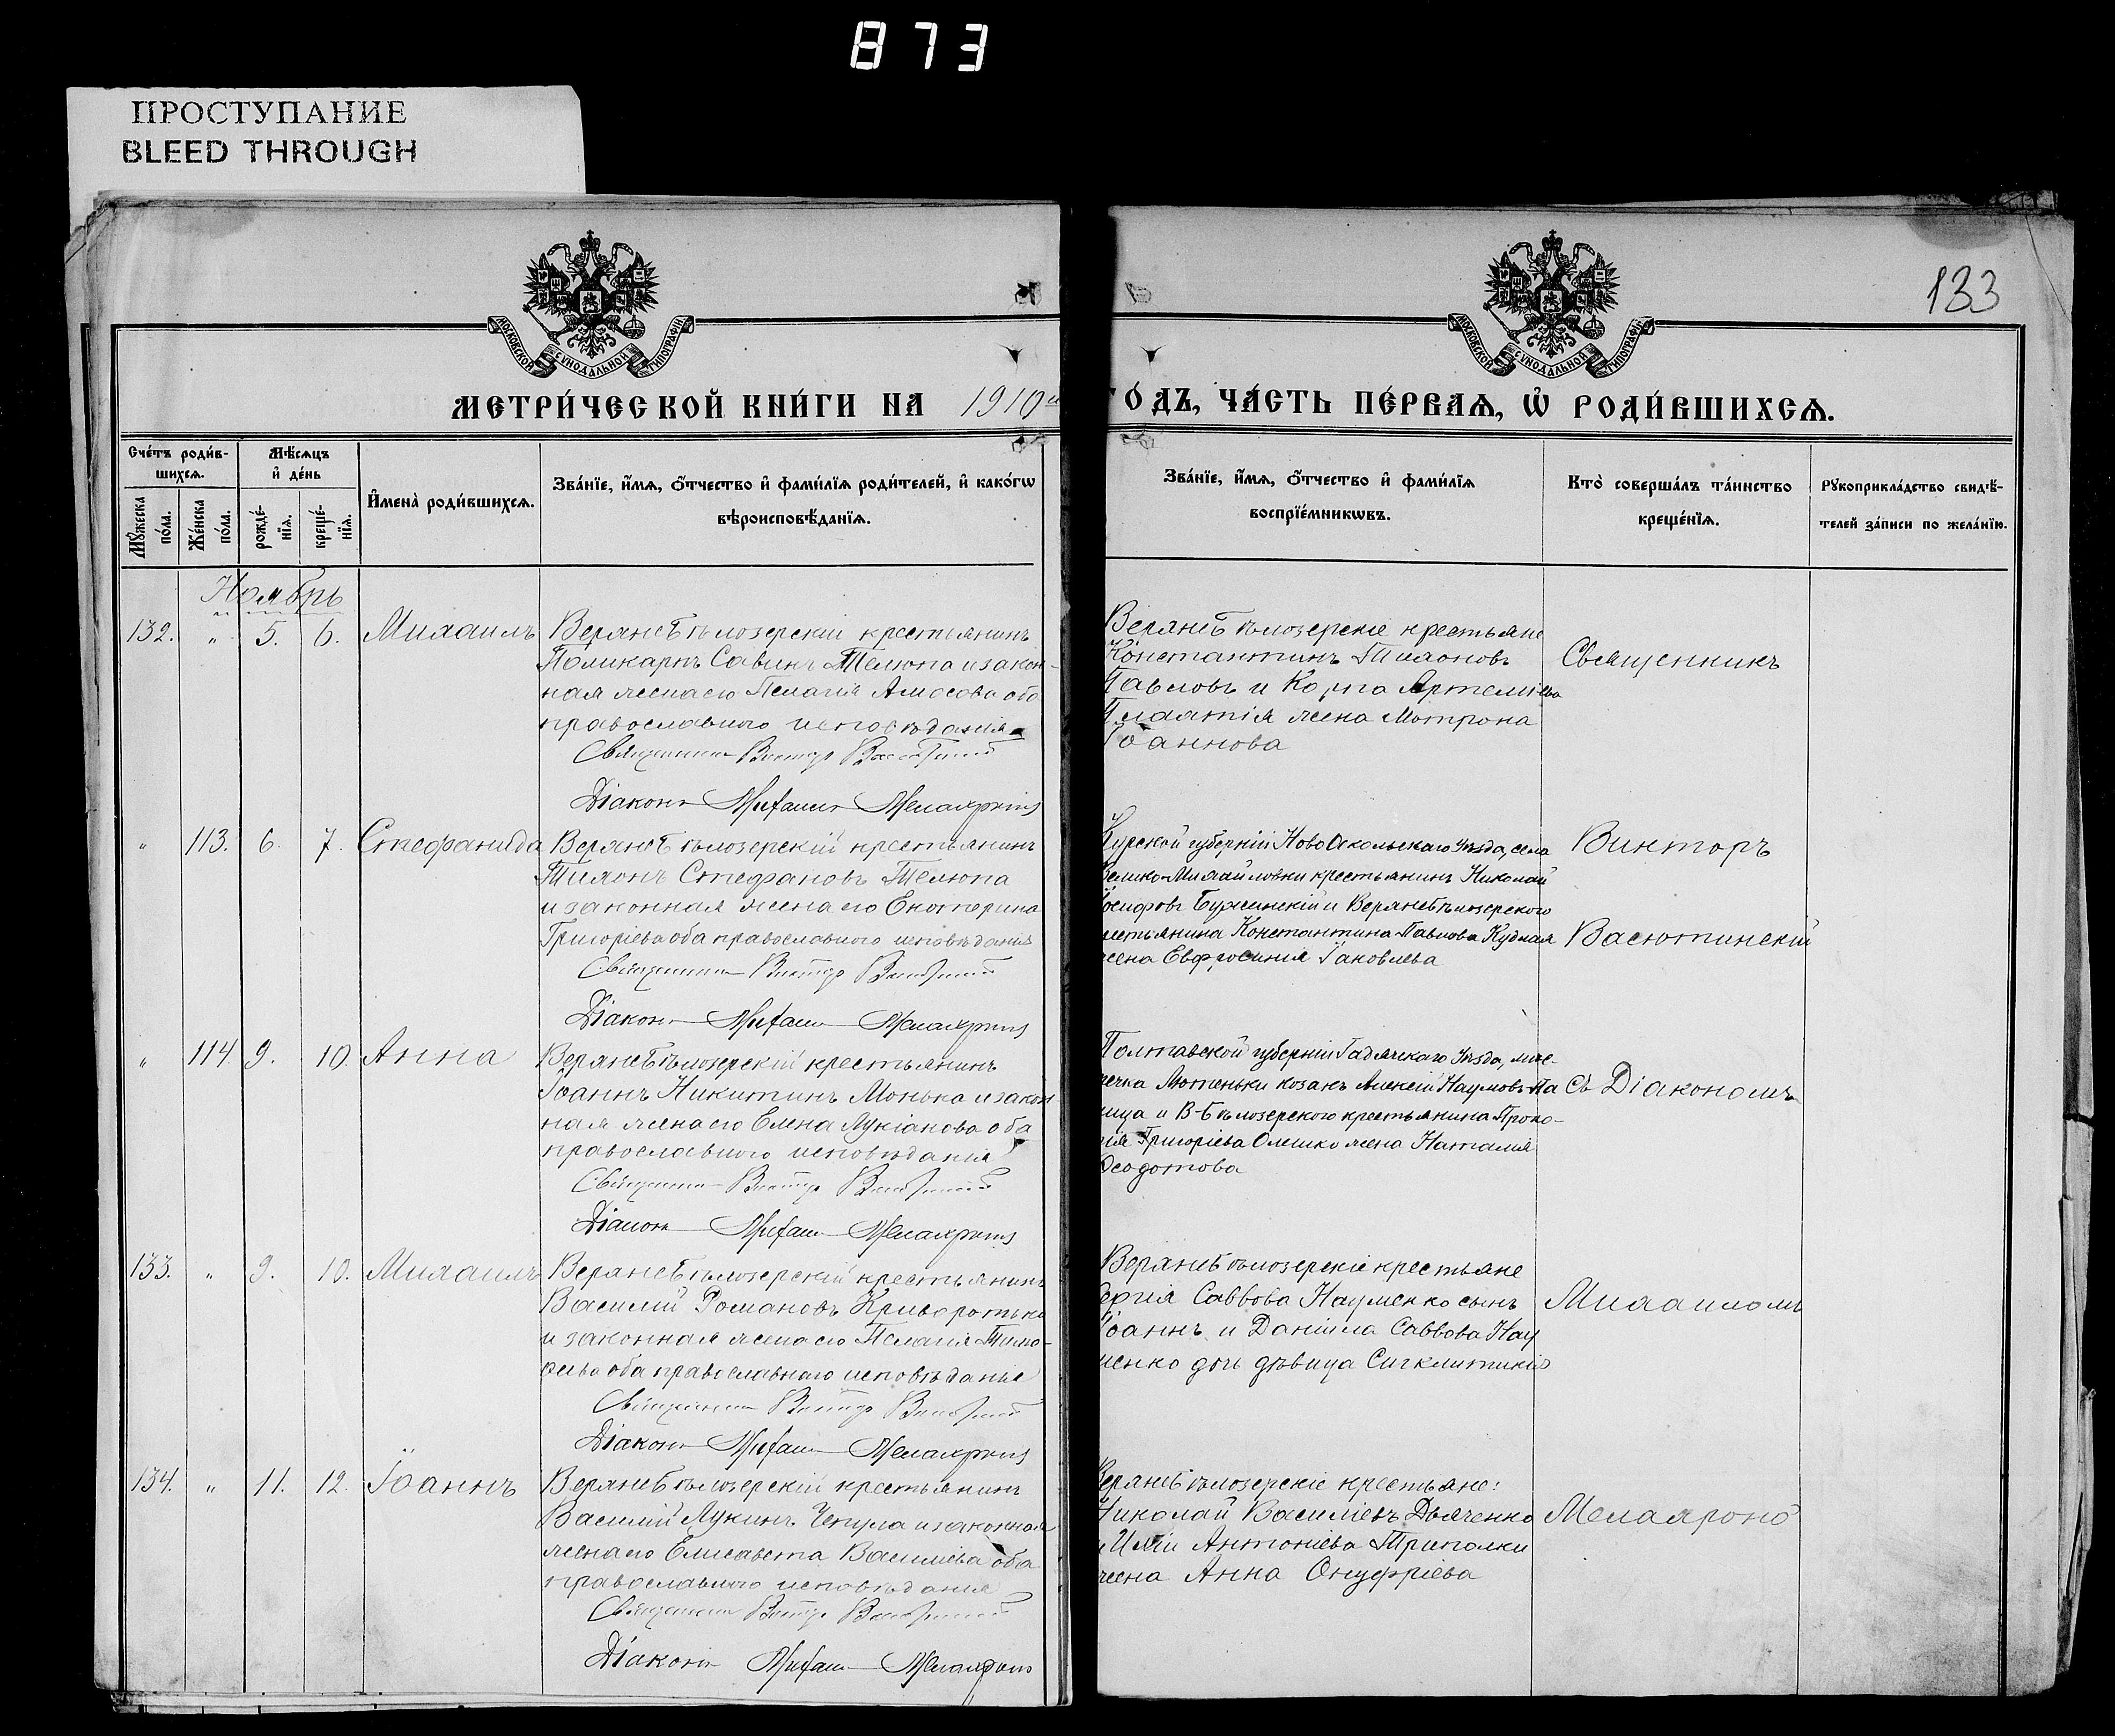 873
ПРОСТУПАНИЕ
BLEED THROUGH
133
МОСКОВСКОЙ СѴНОДАЛЬНОЙ ТИПОГРАФІИ
МОСКОВСКОЙ СѴНОДАЛЬНОЙ ТИПОГРАФІИ
МЕТРИ́ЧЕСКОЙ КНИ́ГИ НА 1910й
ГО́ДЪ, ЧА́СТЬ ПЕ́РВАѦ, Ѡ҆ РОДИ́ВШИХСѦ.
Сче́тъ роди́в-
шихсѧ.
Мꙋ́жеска по́ла.
Же́нска по́ла.
Мѣ́сѧцъ
и҆ де́нь
рожде́-
нїѧ.
креще́-
нїѧ.
И҆мена̀ роди́вшихсѧ.
Зва́нїе, и҆́мѧ, ѻ҆́тчество и҆ фами́лїѧ роди́телей, и҆ како́гѡ
вѣроисповѣ́данїѧ.
Зва́нїе, и҆́мѧ, ѻ҆́тчество и҆ фами́лїѧ
воспрїе́мникѡвъ.
Кто̀ соверша́лъ та́инство
креще́нїѧ.
Рꙋкоприкла́дство свидѣ́-
телей за́писи по жела́нїю.
Ноябрь
132. " 5. 6. Михаилъ
Верхнебѣлозерскій крестьянинъ
Поликарпъ Савинъ Телюпа и закон-
ная жена его Пелагія Амосова оба
православного исповѣданія
Священникъ Викторъ Васютинскій
Діаконъ Михаилъ Мелахроно
Верхнебѣлозерскіе крестьяне
Константинъ Тихоновъ
Павловъ и Артеміева
жена Мотрона
Іоаннова
Священникъ
" 113. 6. 7. Стефанида
Верхнебѣлозерскій крестьянинъ
Тихонъ Стефановъ Телюпа
и законная жена его Екатерина
Григоріева оба православного исповѣданія
Священникъ Викторъ Васютинскій
Діаконъ Михаилъ Мелахроно
Курской губерніи НовоОскольскаго уѣзда, села
Велико-Михайловки крестьянинъ Николай
Іосифовъ Буженскій и Верхнебѣлозерского
крестьянина Константина Павлова Кудлая
жена Евфросинія Іаковлева
Викторъ
Васютинскій
" 114. 9. 10. Анна
Верхнебѣлозерскій крестьянинъ
Іоаннъ Никитинъ Монько и закон
ная жена его Елена Лукіанова оба
православного исповѣданія
Священникъ Викторъ Васютинскій
Діаконъ Михаилъ Мелахроно
Полтавской губерніи Гадячскаго уѣзда, мѣс-
течка Лютеньки козакъ Алексій Наумовъ Па
лица и В-Бѣлозерского крестьянина Проко-
пія Григоріева Олешко жена Наталия
Ѳеодотова
Съ Діакономъ
133. " 9. 10. Михаилъ
Верхнебѣлозерскій крестьянинъ
Василій Романовъ Криворотько
и законная жена его Пелагія Тимо-
ѳеева оба православнаго исповѣданія
Священникъ Викторъ Васютинскій
Діаконъ Михаилъ Мелахроно
Верхнебѣлозерскіе крестьяне
Сергія Саввова Науменко сынъ
Іоаннъ и Даніила Саввова Нау
менко дочь дѣвица Сигклитикія
Михаиломъ
134. " 11. 12. Іоаннъ
Верхнебѣлозерскій крестьянинъ
Василій Лукинъ Чепула и законная
жена его Елисавета Василіева оба
православного исповѣданія
Священникъ Викторъ Васютинскій
Діаконъ Михаилъ Мелахроно
Верхнебѣлозерскіе крестьяне:
Николай Василіевъ Дьяченко
и Иліи Антоніева Триполки
жена Анна Онуфріева
Мелахроно